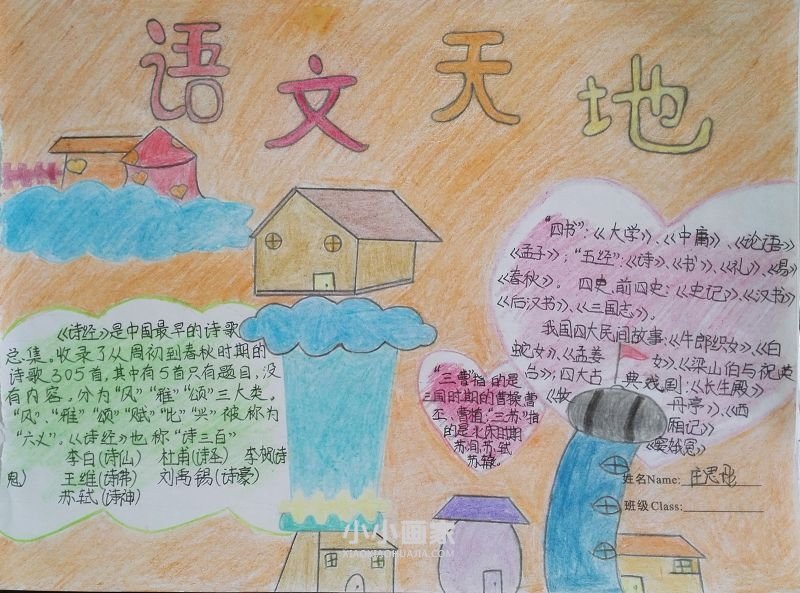 语文天地
《诗经》是中国最早的诗歌
总集。收录了从周初到春秋时期的
诗歌305首,其中有5首只有题目,没
有内容。分为“风”“雅”“颂”三大类。
“风”、“雅”“颂”“赋”“比”“兴”被称为
“六义”。《诗经》也称“诗三百”
李白(诗仙) 杜甫(诗圣) 李贺(诗
鬼) 王维(诗佛) 刘禹锡(诗豪)
苏轼(诗神)
“四书”:《大学》、《中庸》、《论语》
《孟子》;“五经”:《诗》、《书》、《礼》、《易》
《春秋》。四史、前四史:《史记》、《汉书》
《后汉书》、《三国志》。
我国四大民间故事:《牛郎织女》、《白
蛇女》、《孟姜女》、《梁山伯与祝英
台》;四大古典戏剧:《长生殿》
《牧丹亭》、《西
厢记》
《窦娥冤》
“三曹”指的是
三国时期的曹操曹
丕、曹植;“三苏”指
的是北宋时期
苏洵、苏轼
苏辙。
姓名Name:
班级Class:
小小画家
XIAOXIAOHUAJIA.COM